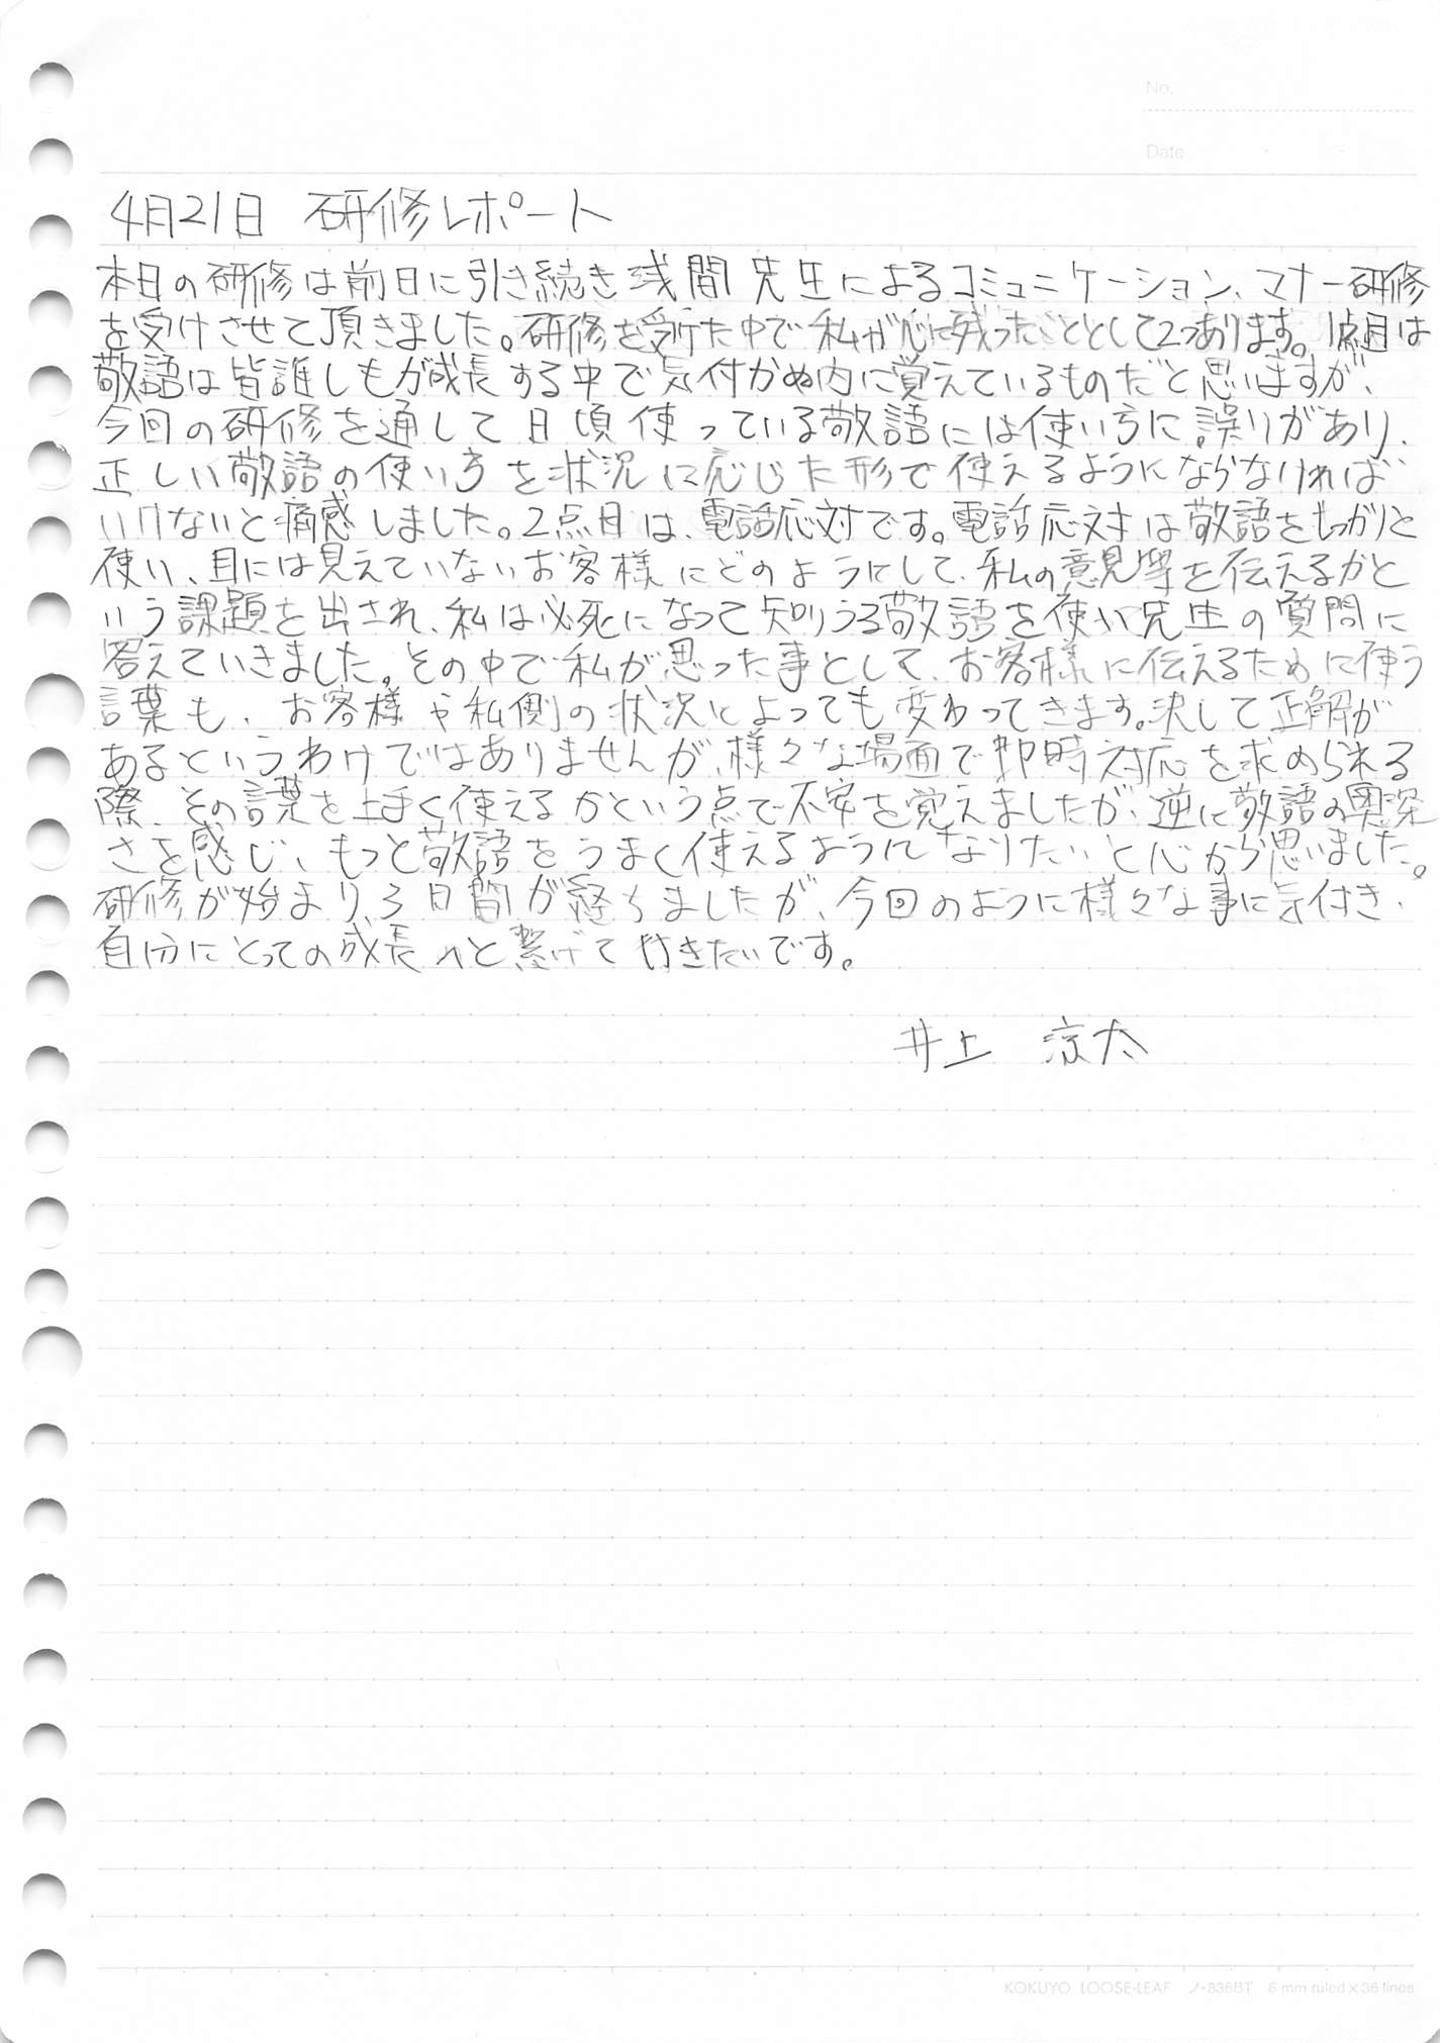 No.
Date
4月21日 研修レポート
本日の研修は前日に引き続き浅間先生によるコミュニケーション、マナー研修
を受けさせて頂きました。研修を受けた中で私が心に残ったこととして2つあります。1点目は
敬語は皆誰しもが成長する中で気付かぬ内に覚えているものだと思いますが、
今回の研修を通して日頃使っている敬語には使い方に誤りがあり、
正しい敬語の使い方を状況に応じた形で使えるようにならなければ
いけないと痛感しました。2点目は、電話応対です。電話応対は敬語をしっかりと
使い、目には見えていないお客様にどのようにして、私の意見等を伝えるかと
いう課題を出され、私は必死になって知りうる敬語を使い先生の質問に
答えていきました。その中で私が思った事として、お客様に伝えるために使う
言葉も、お客様や私側の状況によっても変わってきます。決して正解が
あるというわけではありませんが、様々な場面で即時対応を求められる
際、その言葉を上手く使えるかという点で不安を覚えましたが、逆に敬語の奥深
さを感じ、もっと敬語をうまく使えるようになりたいと心から思いました。
研修が始まり、3日間が経ちましたが、今回のように様々な事に気付き、
自分にとっての成長へと繋げて行きたいです。
井上 涼太
KOKUYO LOOSE-LEAF ノ-836BT 6 mm ruled×36 lines